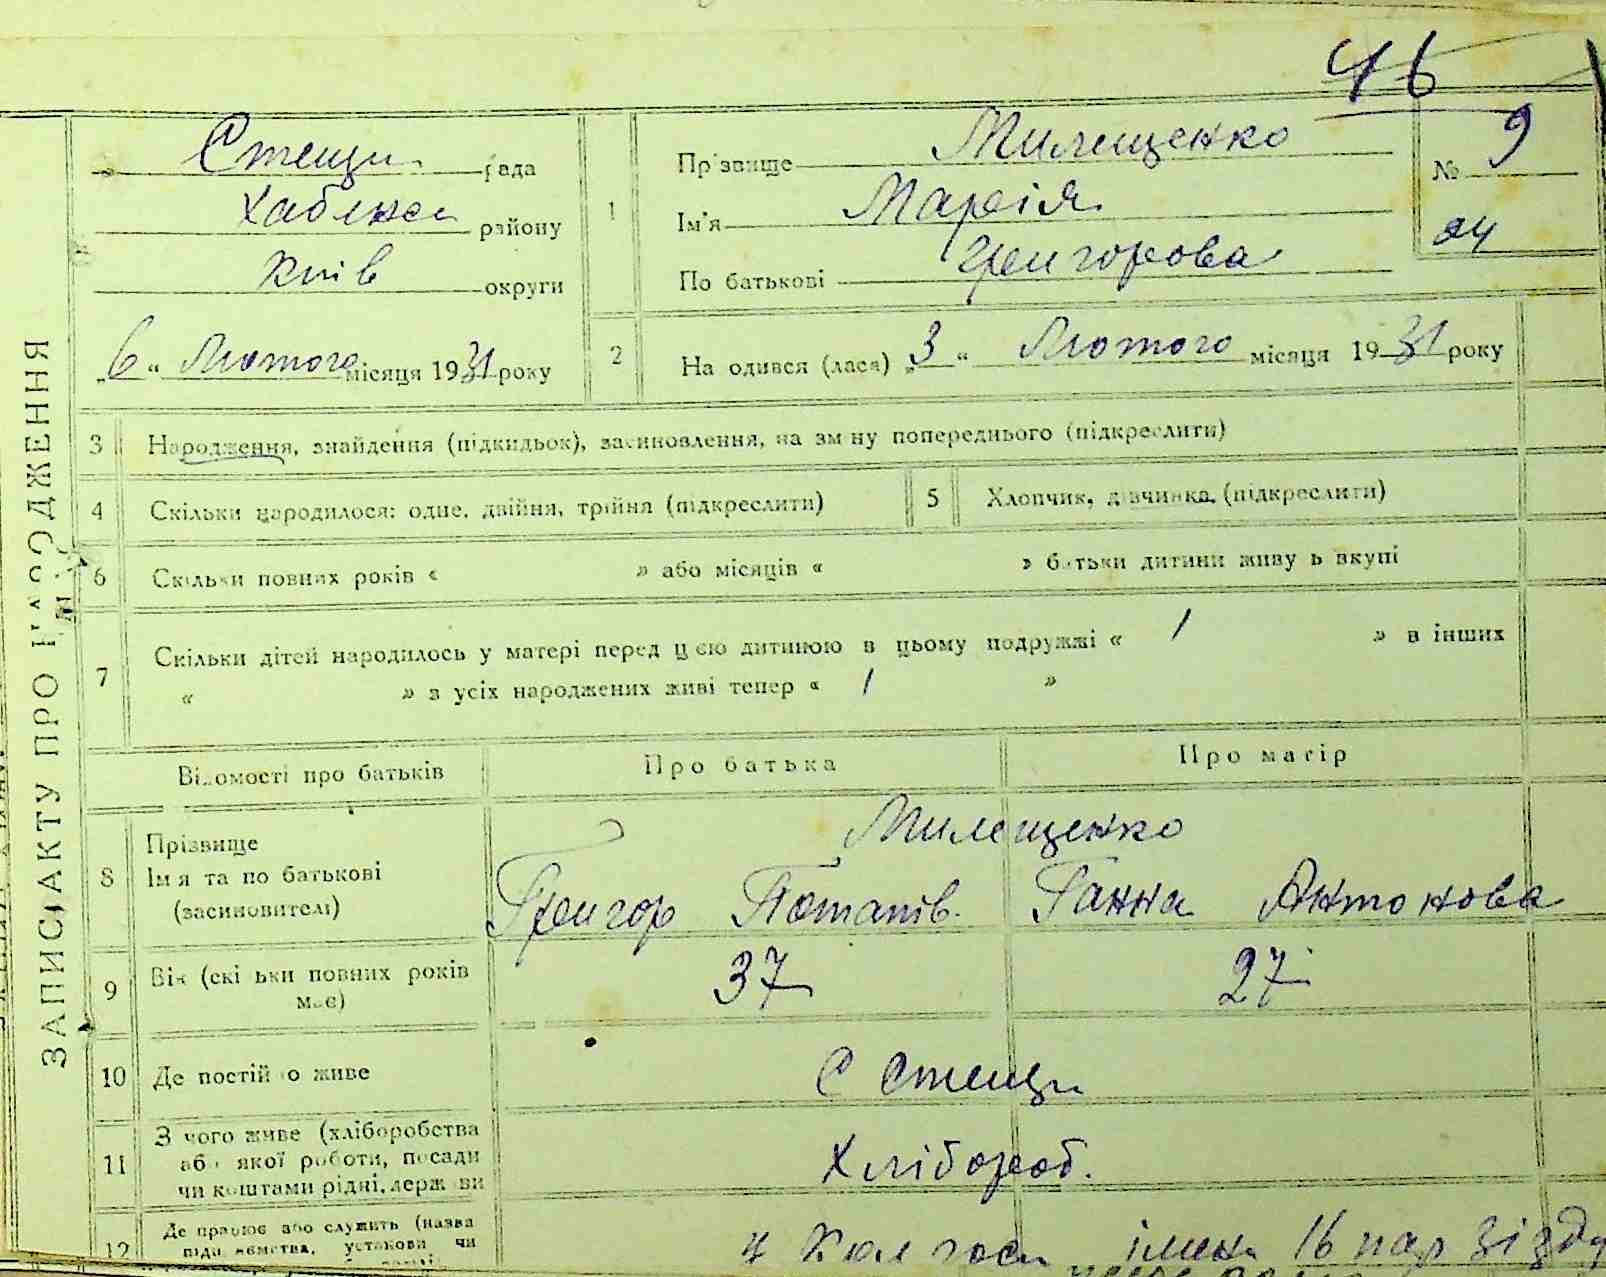 46
Стещи рада
Хабенсь району
Київ округи
„6“ Лютого місяця 1931 року
1
Прізвище Милещенко
Ім'я Марія
По батькові Григорова
№ 9
24
2 Народився (лася) „3“ Лютого місяця 1931 року
ЗАПИС АКТУ ПРО НАРОДЖЕННЯ
3 Народження, знайдення (підкидьок), засиновлення, на зміну попереднього (підкреслити)
4 Скільки народилося: одне, двійня, трійня (підкреслити) 5 Хлопчик, дівчинка (підкреслити)
6 Скільки повних років « » або місяців « » батьки дитини живуть вкупі
7 Скільки дітей народилось у матері перед цією дитиною в цьому подружжі « 1 » в інших
« » з усіх народжених живі тепер « 1 »
Відомості про батьків Про батька Про матір
8 Прізвище Милещенко
Ім'я та по батькові Григор Потапів. Ганна Антонова
(засиновителі)
9 Вік (скільки повних років має) 37 27
10 Де постійно живе С Стещи
11 З чого живе (хліборобства
або якої роботи, посади Хлібороб.
чи коштами рідні, держави
12 Де працює або служить (назва
підприємства, установи чи імени 16 пар зізду